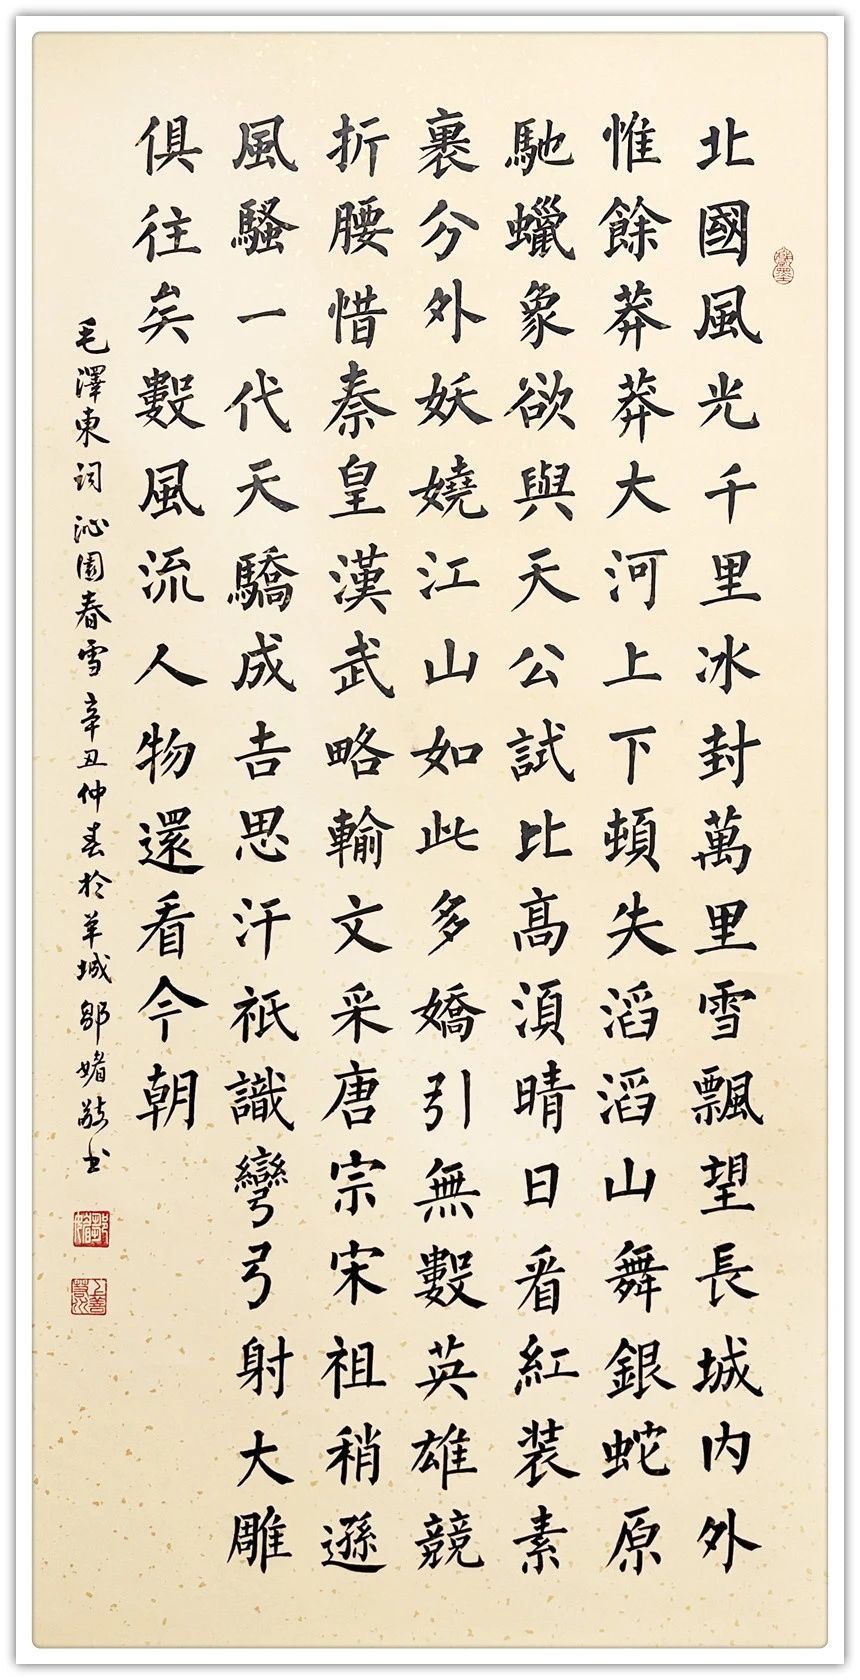 北國風光千里冰封萬里雪飄望長城内外
惟餘莽莽大河上下頓失滔滔山舞銀蛇原
馳蠟象欲與天公試比高須晴日看紅装素
裹分外妖嬈江山如此多嬌引無數英雄競
折腰惜秦皇漢武略輸文采唐宗宋祖稍遜
風騷一代天驕成吉思汗祇識彎弓射大雕
俱往矣數風流人物還看今朝
毛澤東詞沁園春雪辛丑仲春於羊城鄒媚敬书